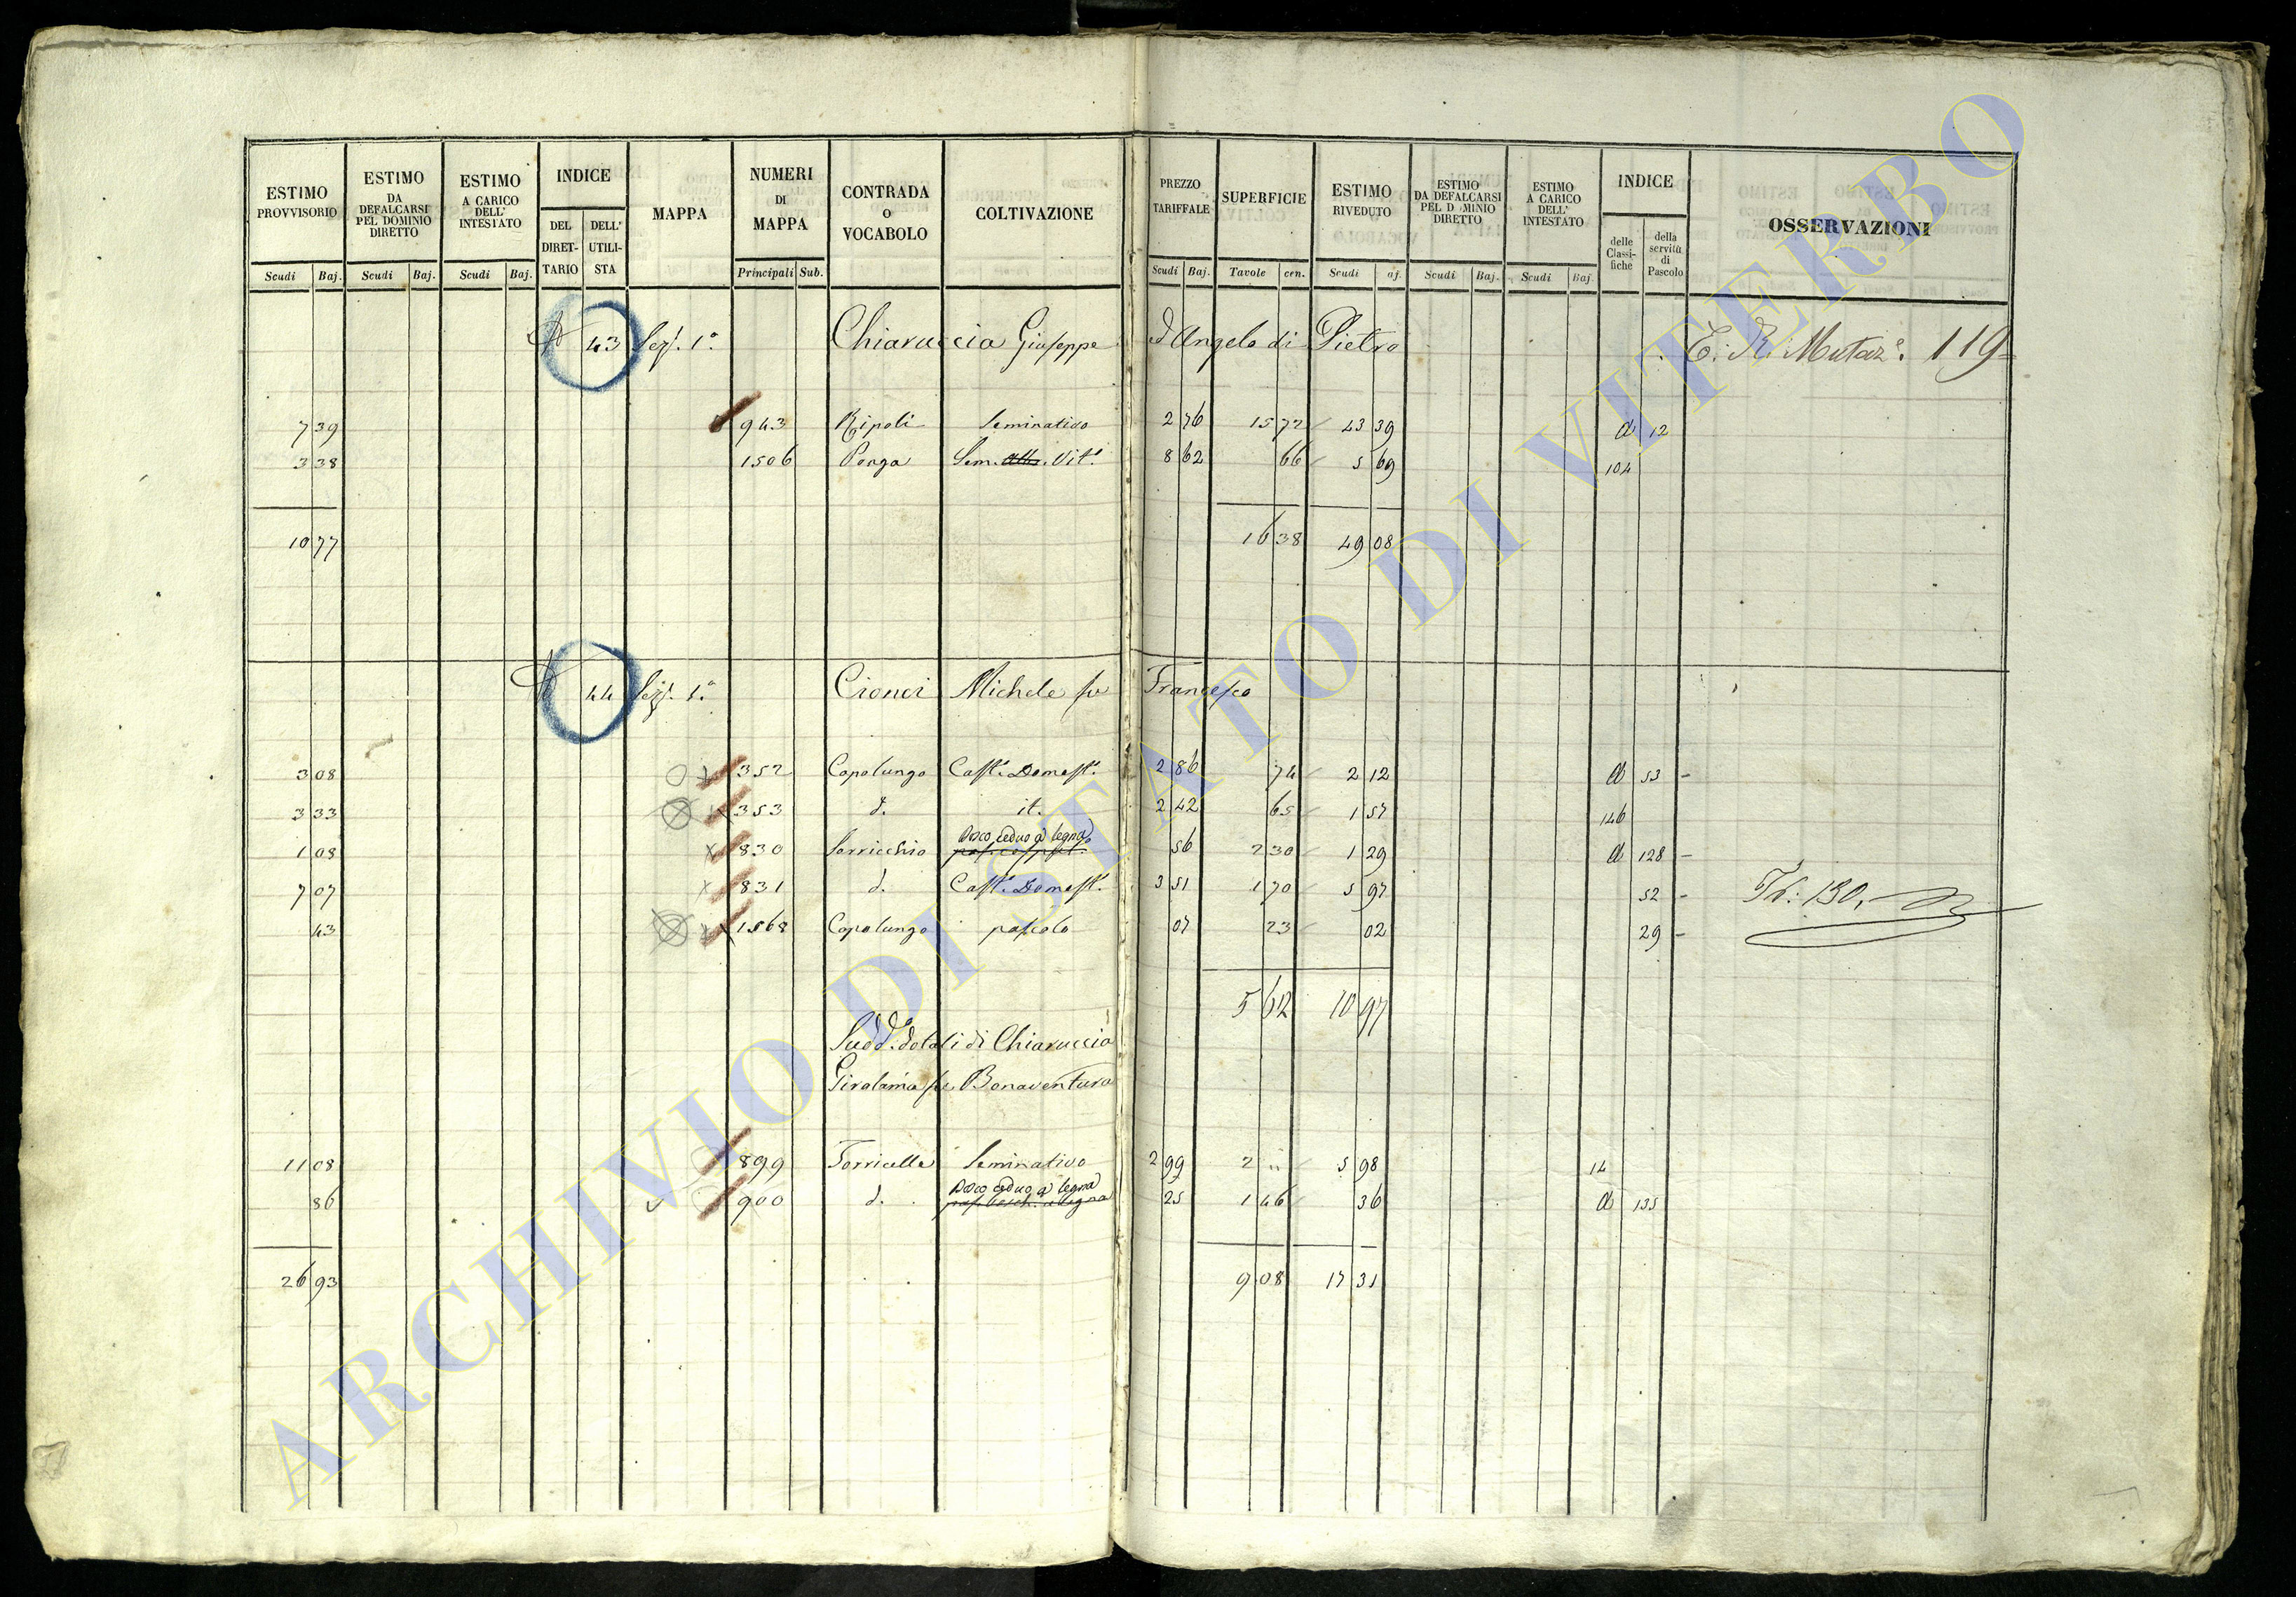 ESTIMO PROVVISORIO | ESTIMO DA DEFALCARSI PEL DOMINIO DIRETTO | ESTIMO A CARICO DELL' INTESTATO | INDICE | MAPPA | NUMERI DI MAPPA | CONTRADA O VOCABOLO | COLTIVAZIONE | PREZZO TARIFFALE | SUPERFICIE | ESTIMO RIVEDUTO | ESTIMO DA DEFALCARSI PEL D MINIO DIRETTO | ESTIMO A CARICO DELL' INTESTATO | INDICE | OSSERVAZIONI
DEL DIRETTARIO | DELL' UTILISTA | delle Classifiche | della servitù di Pascolo
Scudi | Baj. | Scudi | Baj. | Scudi | Baj. | Principali | Sub. | Scudi | Baj. | Tavole | cen. | Scudi | aj. | Scudi | Baj. | Scudi | Baj.
43 Sez. 1.a Chiaruccia Giuseppe d'Angelo di Pietro Mutaz.e 119
7 39 943 Ripoli Seminativo 2 76 15 72 43 39 d 12
3 38 1506 Penga Sem. Vit.o 8 62 66 5 69 104
10 77 16 38 49 08
44 Sez. 1.a Cionci Michele fu Francesco
3 08 352 Capolungo Cast.o Domest.o 2 86 74 2 12 d 53 -
3 33 353 d. it. 2 42 65 1 57 146
1 08 830 Serricchio Bosco ceduo a legna 56 2 30 1 29 d 128 -
7 07 831 d. Cast.o Domest.o 3 51 1 70 5 97 52 - 130
43 1568 Capolungo pascolo 07 23 02 29 -
5 62 10 97
Sudd.o dotali di Chiaruccia
Girolama fu Bonaventura
11 08 899 Torricella Seminativo 2 99 2 " 5 98 14
86 900 d. Bosco ceduo a legna 25 1 46 36 d 135
26 93 9 08 17 31
ARCHIVIO DI STATO DI VITERBO